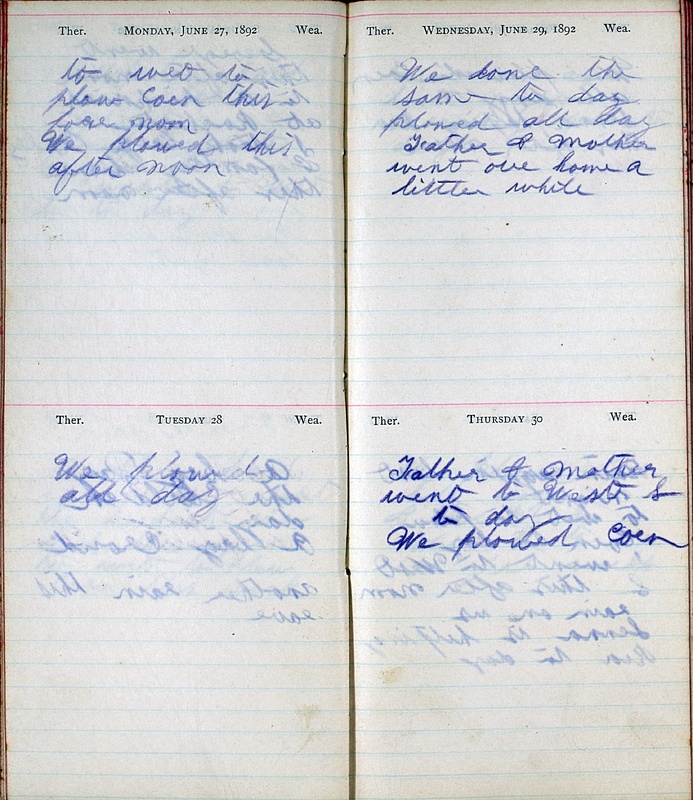 Ther. MONDAY, JUNE 27, 1892 Wea.
to wet to
plow Coen this
fore noon
We plowed this
after noon
Ther. TUESDAY 28 Wea.
We plowed
all day
Ther. WEDNESDAY, JUNE 29, 1892 Wea.
We done the
same to day
plowed all day
Father & Mother
went ove home a
little while
Ther. THURSDAY 30 Wea.
Father & Mother
went to West S
to day
We plowed Coen